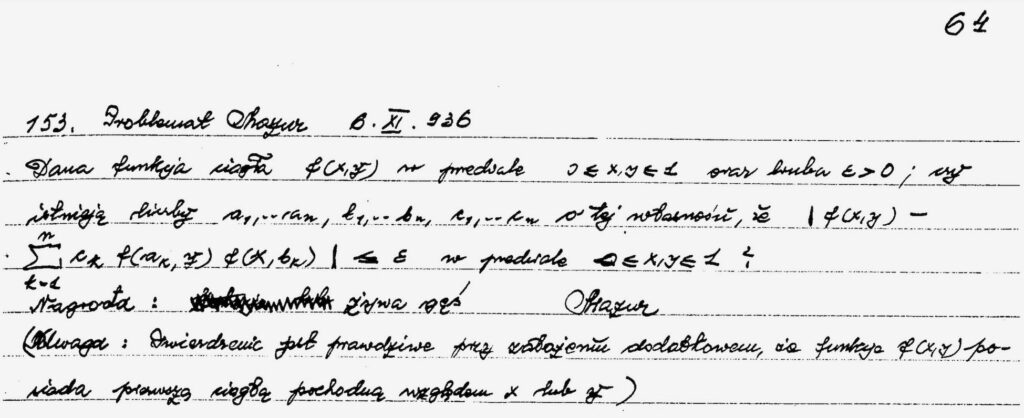 61
153. Problemat Mazur 6. XI. 936
Dana funkcja ciągła f(x,y) w przedziale 0 ≤ x,y ≤ 1 oraz liczba ε > 0 ; czy
istnieją liczby a₁,...aₙ, b₁,...bₙ, c₁,...cₙ o tej własności, że | f(x,y) −
∑ₖ₌₁ⁿ cₖ f(aₖ, y) f(x, bₖ) | ≤ ε w przedziale 0 ≤ x,y ≤ 1 ?
Nagroda : żywa gęś Mazur
(Uwaga : Twierdzenie jest prawdziwe przy założeniu dodatkowem, że funkcja f(x,y) po-
siada pierwszą ciągłą pochodną względem x lub y )